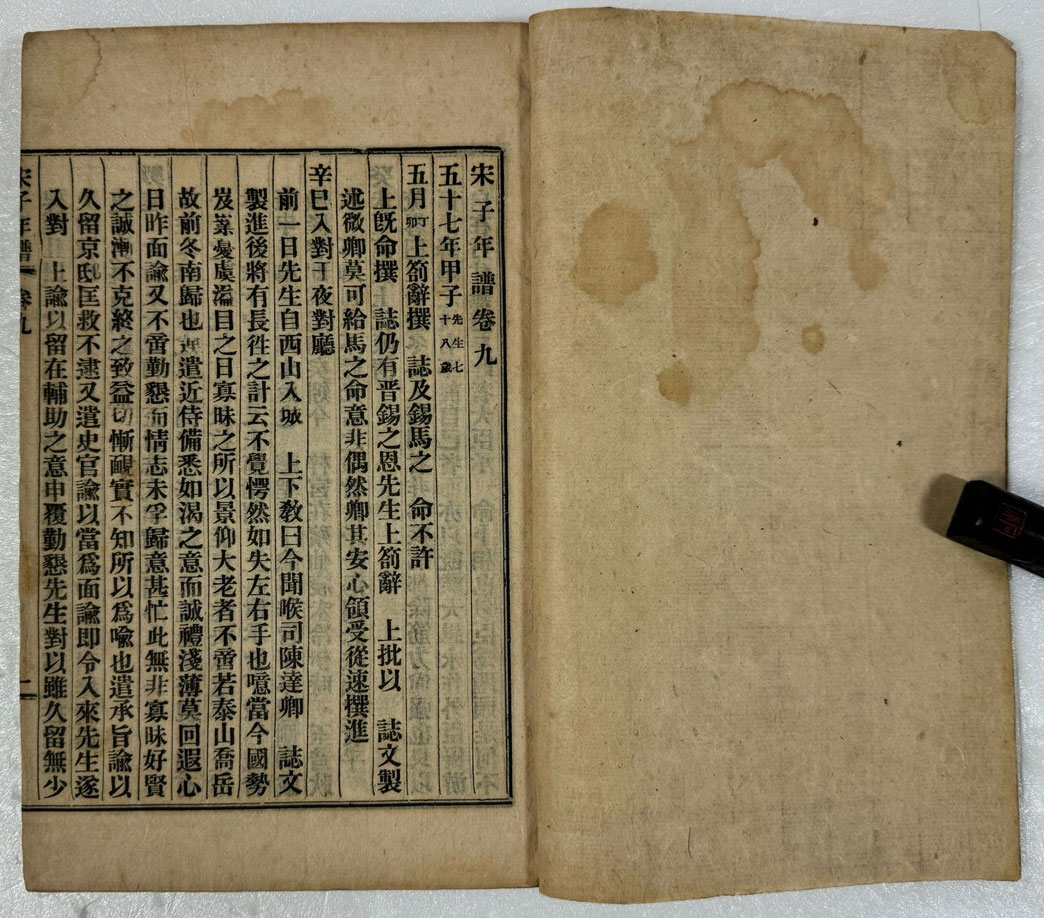 宋子年譜卷九
五十七年甲子先生七十八歲
五月丁卯上箚辭撰　誌及錫馬之　命不許
上旣命撰　誌仍有晋錫之恩先生上箚辭　上批以　誌文製
述微卿莫可給馬之命意非偶然卿其安心領受從速撰進
辛巳入對于夜對廳
前一日先生自西山入城　上下敎曰今聞喉司陳達卿　誌文
製進後將有長徃之計云不覺愕然如失左右手也噫當今國勢
岌嶪憂虞溢目之日寡昧之所以景仰大老者不啻若泰山喬岳
故前冬南歸也遣近侍備悉如渴之意而誠禮淺薄莫回遐心
日昨面諭又不啻勤懇而情志未孚歸意甚忙此無非寡昧好賢
之誠漸不克終之致益切慚靦實不知所以爲喩也遣承旨諭以
久留京邸匡救不逮又遣史官諭以當爲面諭卽令入來先生遂
入對　上諭以留在輔助之意申覆勤懇先生對以雖久留無少
宋子年譜　卷九
一